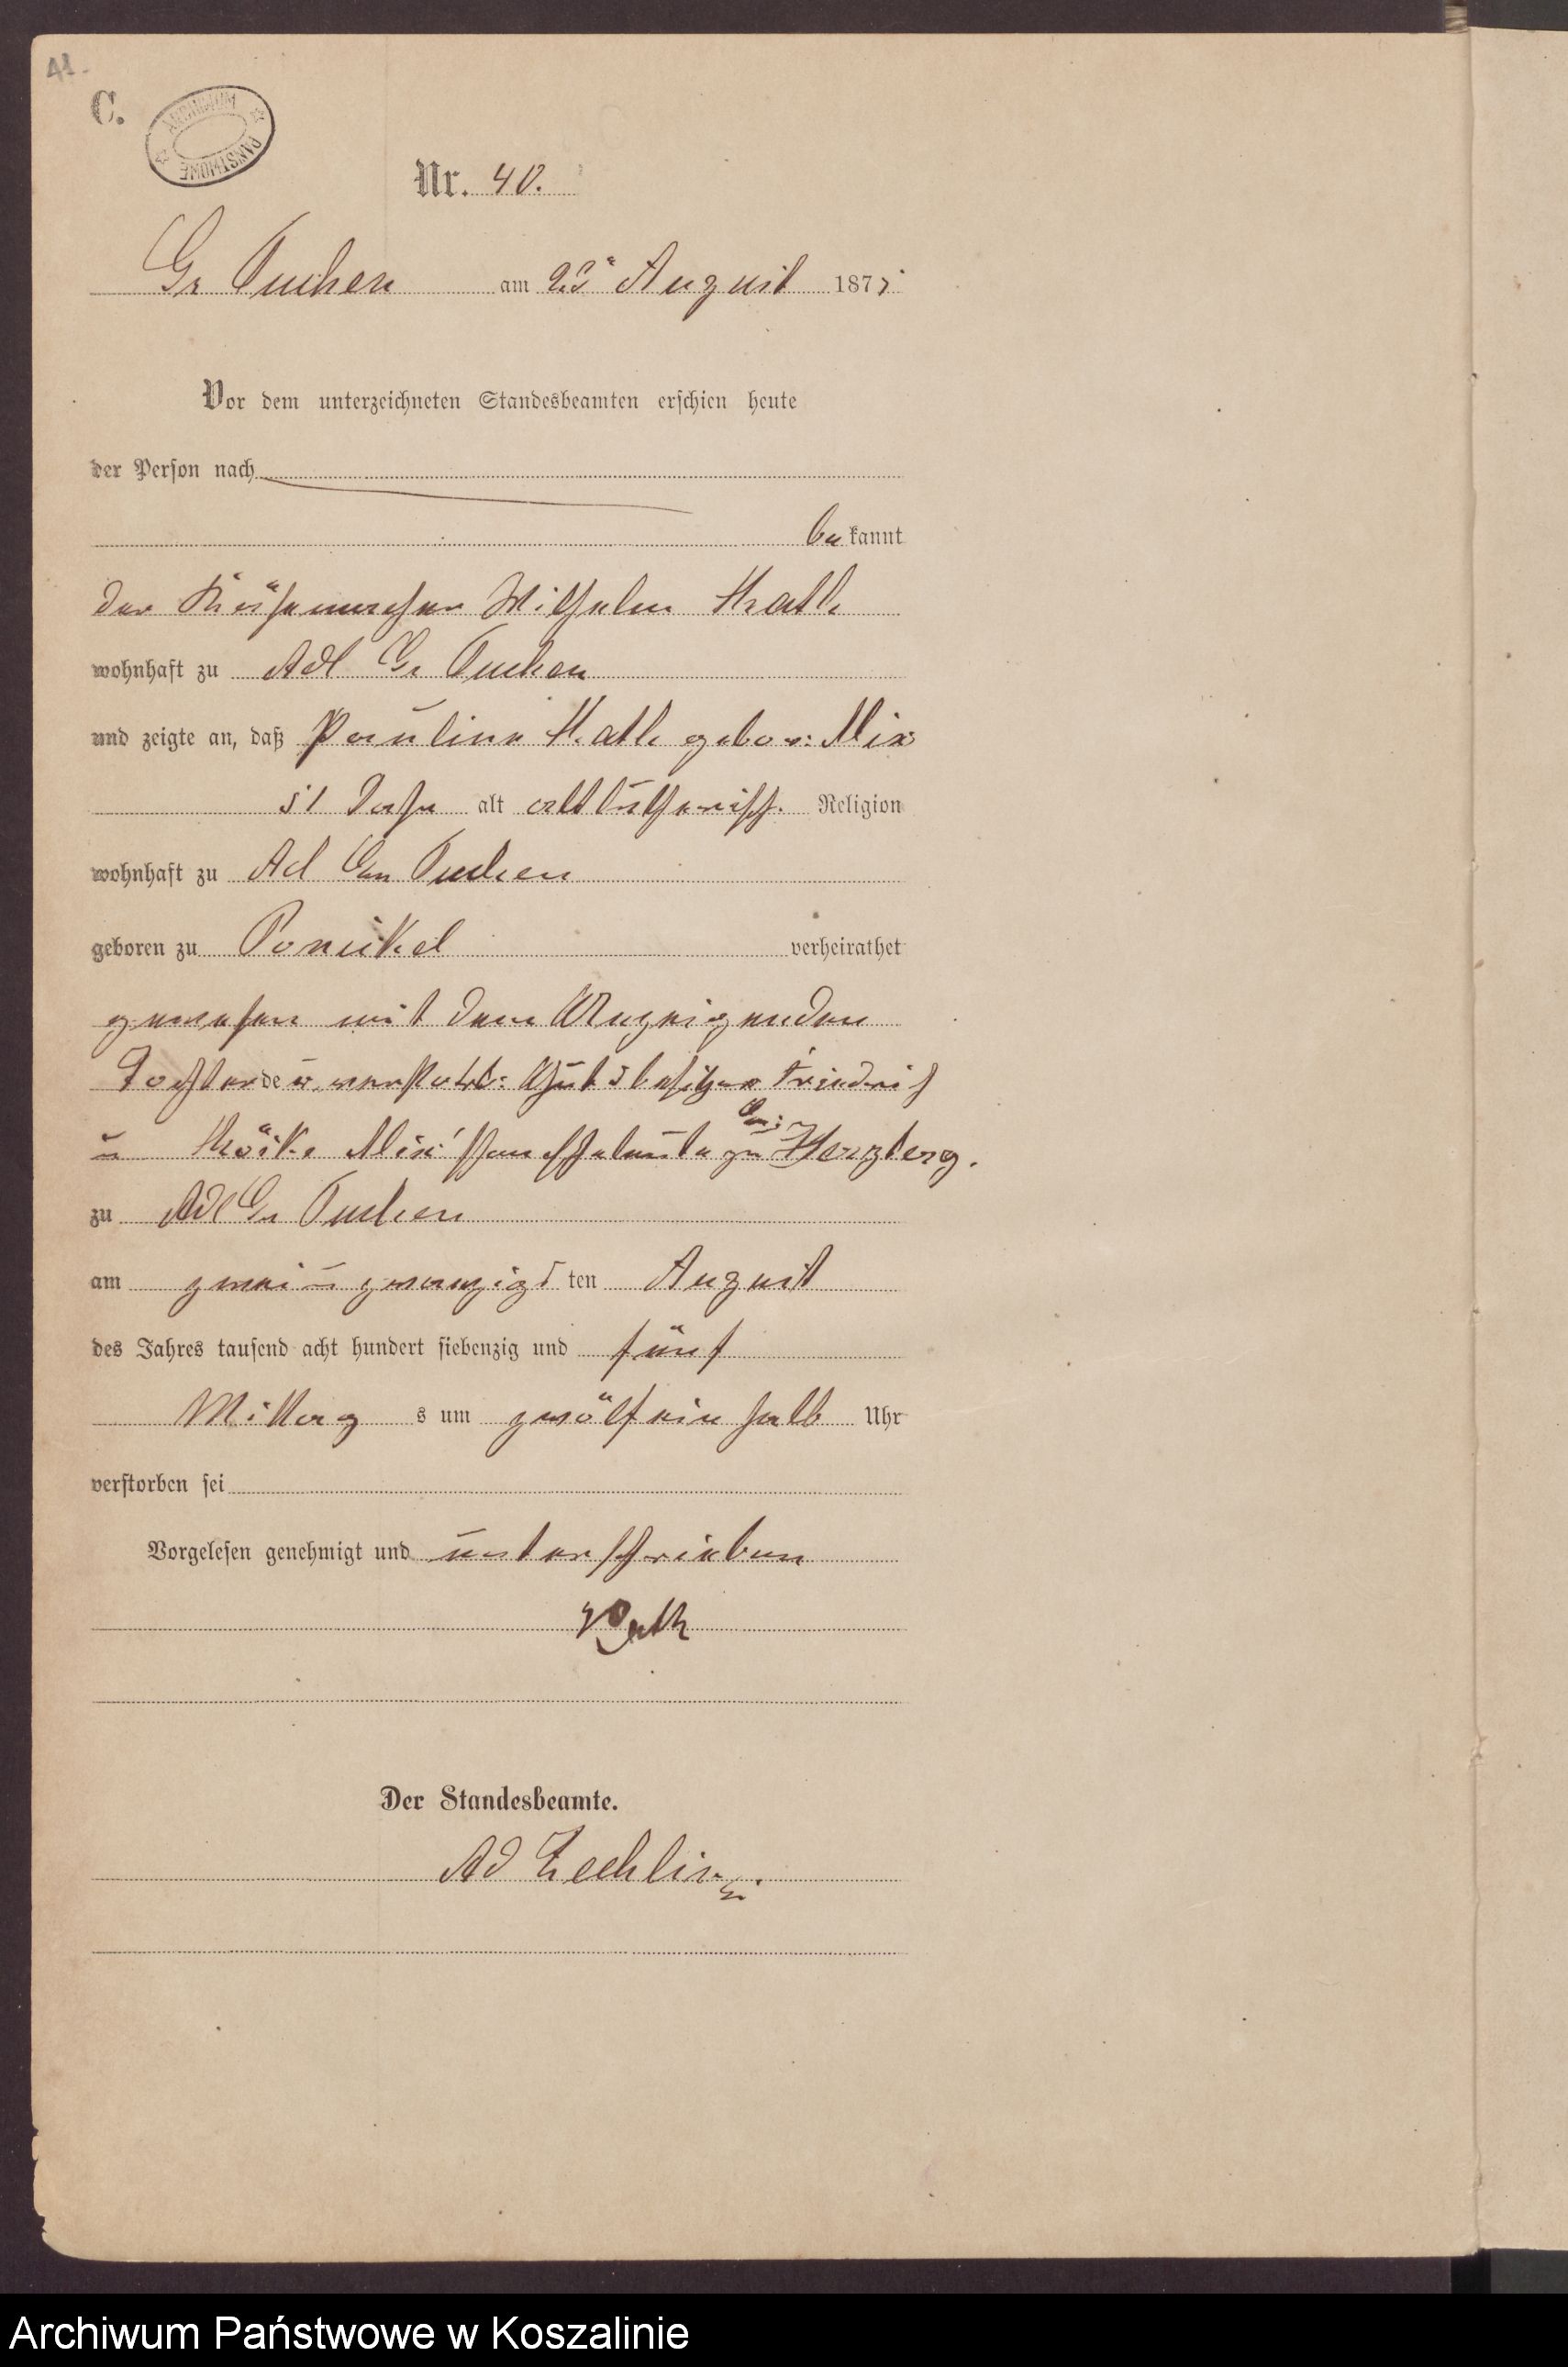 41.
C.
ARCHIWUM PAŃSTWOWE
Nr. 40.
Gr Tuchen am 23 August 1875
Vor dem unterzeichneten Standesbeamten erschien heute
der Person nach
bekannt
der Wilhelm
wohnhaft zu Adl Gr Tuchen
und zeigte an, daß Pauline gebor: Mix
51 Jahr alt altlutherisch. Religion
wohnhaft zu Adl Gr Tuchen
geboren zu Ponickel verheirathet
gewesen mit dem Anzeigenden
Tochter der verstorb: Gutsbesitzer Friedrich
u Mix'schen Eheleute zu Herzberg.
zu Adl Gr Tuchen
am zwei u zwanzigsten August
des Jahres tausend acht hundert siebenzig und fünf
Mittags um zwölf ein halb Uhr
verstorben sei
Vorgelesen genehmigt und unterschrieben
Der Standesbeamte.
Ad Zechlin
Archiwum Państwowe w Koszalinie